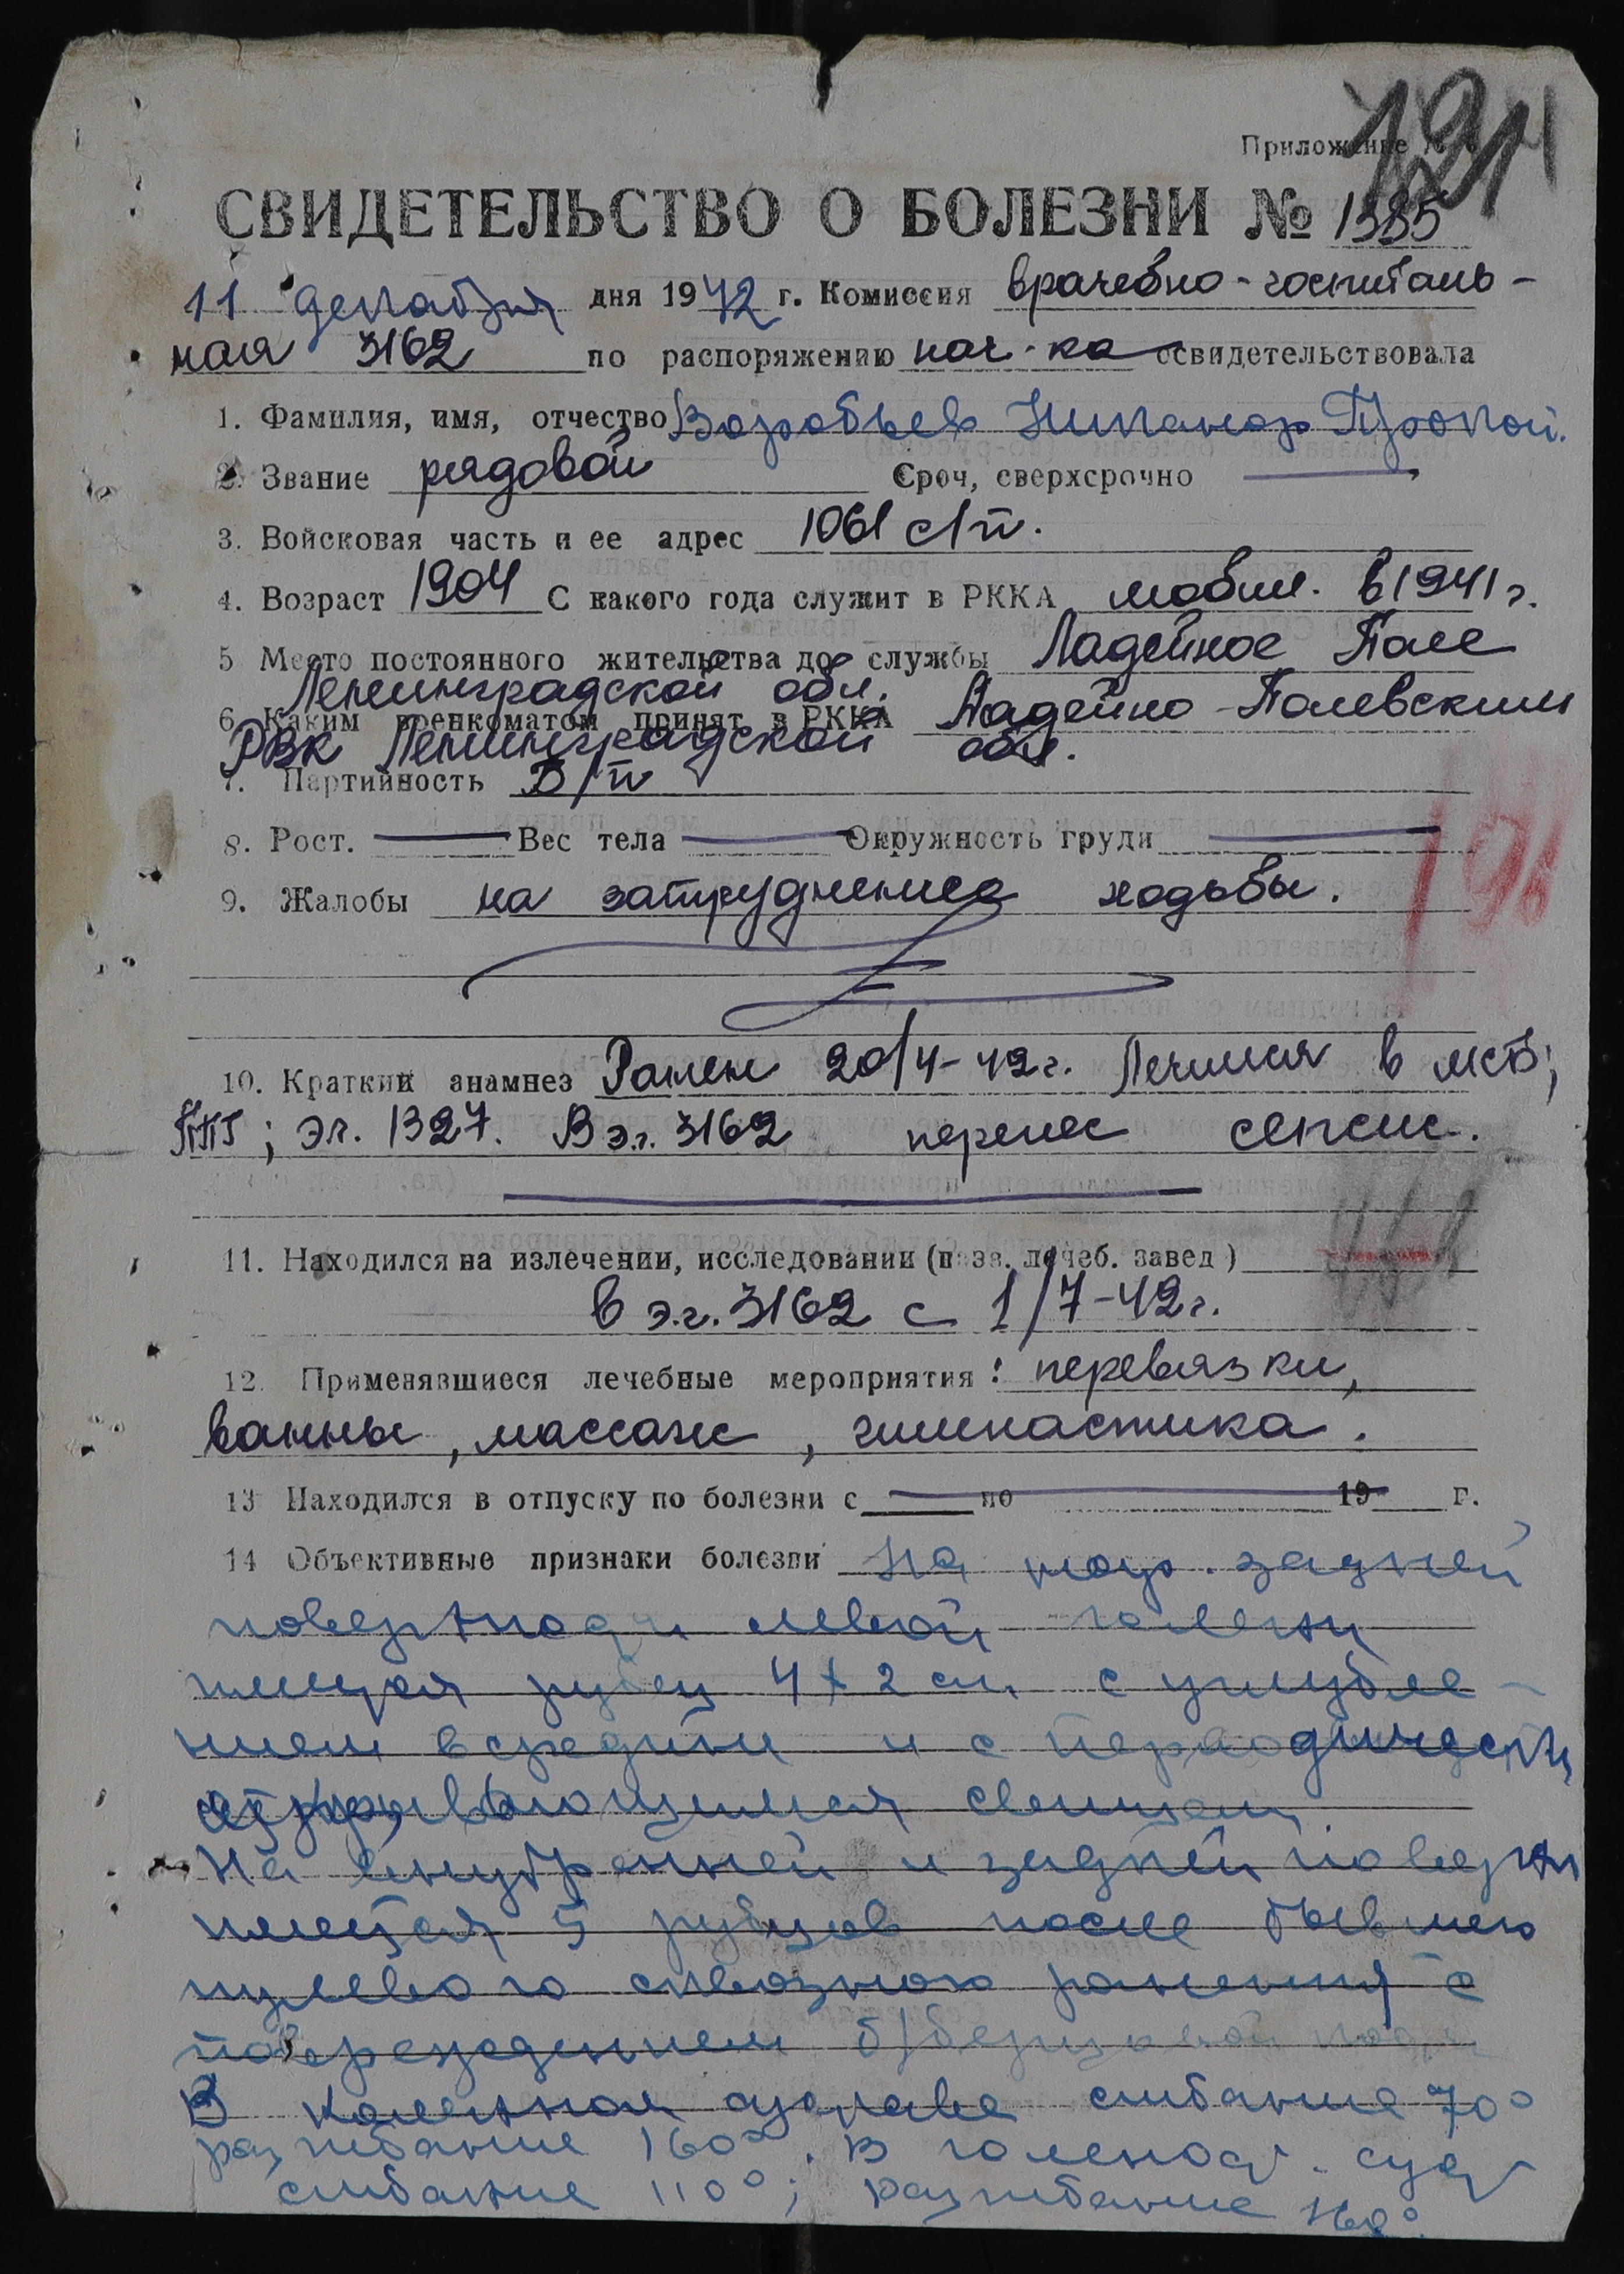 Приложение №
СВИДЕТЕЛЬСТВО О БОЛЕЗНИ № 1385
11 декабря дня 1942 г. Комиссия врачебно-госпиталь-
ная 3162 по распоряжению нач-ка освидетельствовала
1. Фамилия, имя, отчество Воробьев Никанор Прокоп.
2. Звание рядовой Сроч, сверхсрочно —
3. Войсковая часть и ее адрес 1061 с/п.
4. Возраст 1904 С какого года служит в РККА мобил. в 1941 г.
5 Место постоянного жительства до службы Ладейное Поле
Ленинградской обл.
6. Каким военкоматом принят в РККА Ладейно-Полевским
РВК Ленинградской обл.
7. Партийность Б/п
8. Рост. — Вес тела — Окружность груди —
196
9. Жалобы на затруднение ходьбы.
10. Краткий анамнез Ранен 20/4-42г. Лечился в мсб;
ППГ; эг. 1327. В э.г. 3162 перенес сепсис.
11. Находился на излечении, исследовании (назв. лечеб. завед)
в э.г. 3162 с 1/7-42г.
12. Применявшиеся лечебные мероприятия: перевязки,
ванны, массаж, гимнастика.
13 Находился в отпуску по болезни с — по — 19 г.
14 Объективные признаки болезни На задней
поверхности левой голени
имеется рубец 4 х 2 см с углубле-
нием в средине и с периодически
открывающимся свищем.
На внутренней и задней поверхн
имеется 5 рубцов после бывшего
пулевого сквозного ранения с
повреждением б/берцовой кости
В коленном суставе сгибание 70°
разгибание 160°. В голеност. суст
сгибание 110°; разгибание 160°.